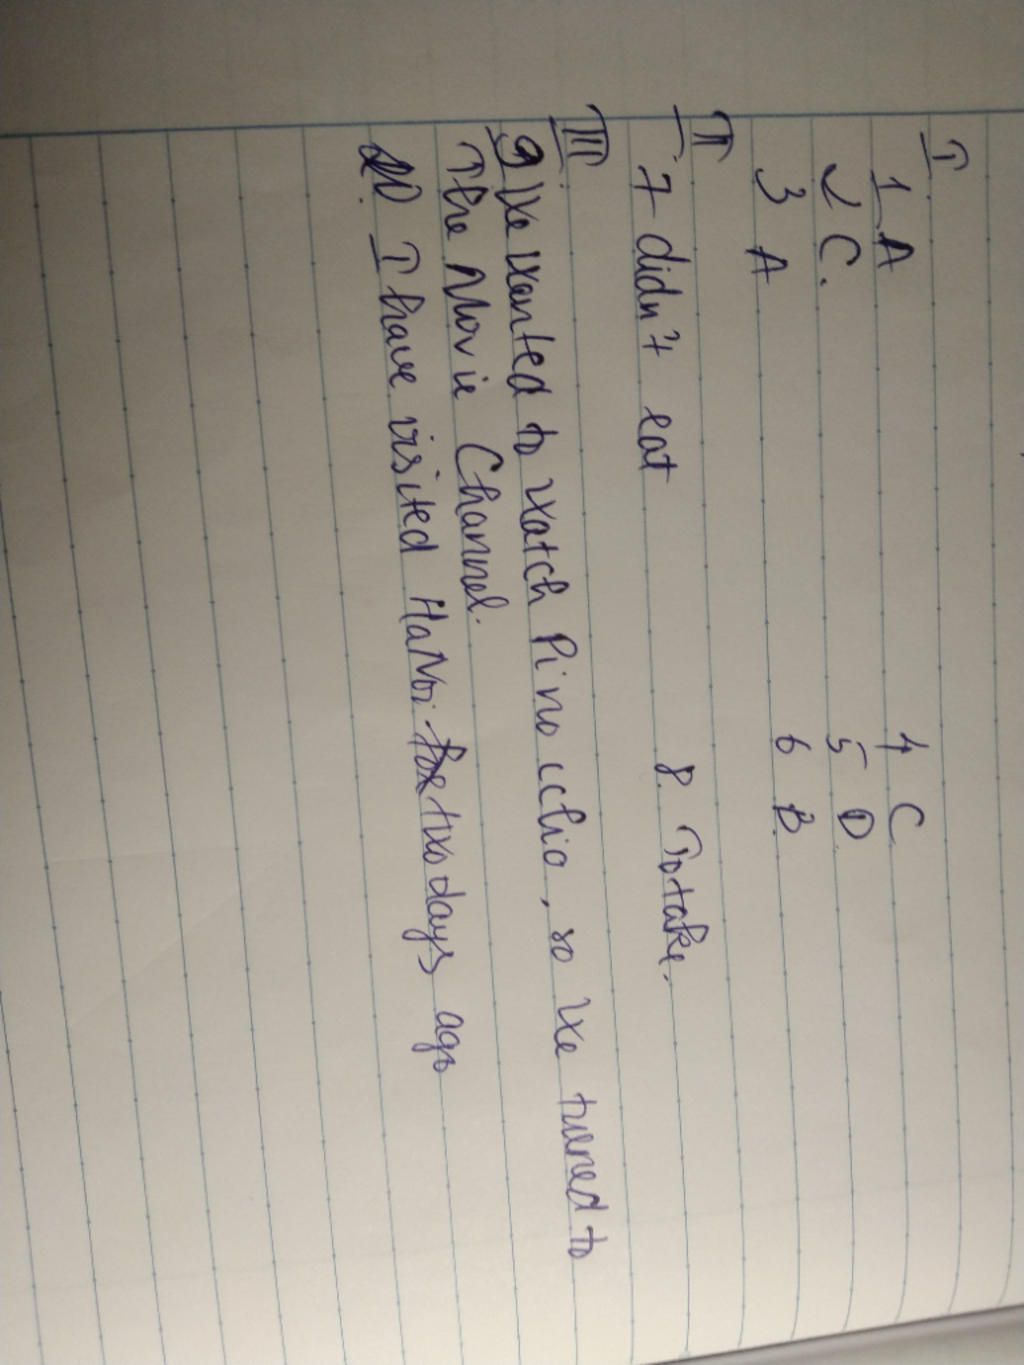 I.
1 A 4 C
2 C. 5 D
3 A 6 B
II
7 didn't eat 8. To take.
III.
9 We wanted to watch Pinocchio, so we turned to
The Movie Channel.
10. I have visited HaNoi for two days ago